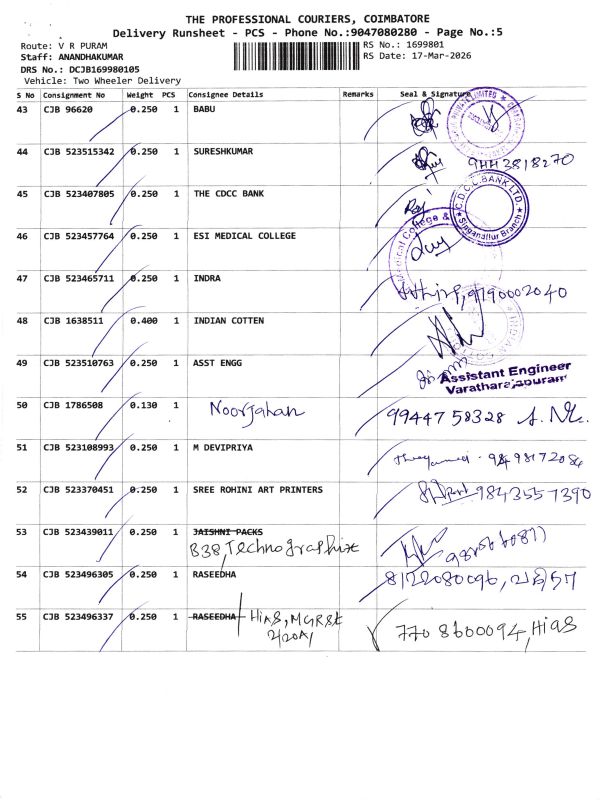 THE PROFESSIONAL COURIERS, COIMBATORE
Delivery Runsheet - PCS - Phone No.:9047080280 - Page No.:5
Route: V R PURAM RS No.: 1699801
Staff: ANANDHAKUMAR RS Date: 17-Mar-2026
DRS No.: DCJB169980105
Vehicle: Two Wheeler Delivery
S No Consignment No Weight PCS Consignee Details Remarks Seal & Signature
43 CJB 96620 0.250 1 BABU
44 CJB 523515342 0.250 1 SURESHKUMAR 9443818270
45 CJB 523407805 0.250 1 THE CDCC BANK C.D.C.C. BANK LTD. Singanallur Branch
46 CJB 523457764 0.250 1 ESI MEDICAL COLLEGE Medical College &
47 CJB 523465711 0.250 1 INDRA 9190002040
48 CJB 1638511 0.400 1 INDIAN COTTEN
49 CJB 523510763 0.250 1 ASST ENGG Assistant Engineer
Varatharajapuram
50 CJB 1786508 0.130 1 Noorjahan 9944758328
51 CJB 523108993 0.250 1 M DEVIPRIYA
52 CJB 523370451 0.250 1 SREE ROHINI ART PRINTERS 9843557390
53 CJB 523439011 0.250 1 JAISHNI PACKS
B38, Technographix
54 CJB 523496305 0.250 1 RASEEDHA 8122080096,
55 CJB 523496337 0.250 1 RASEEDHA HiAS, MGR St 7708600094, HiAS
2/20A1